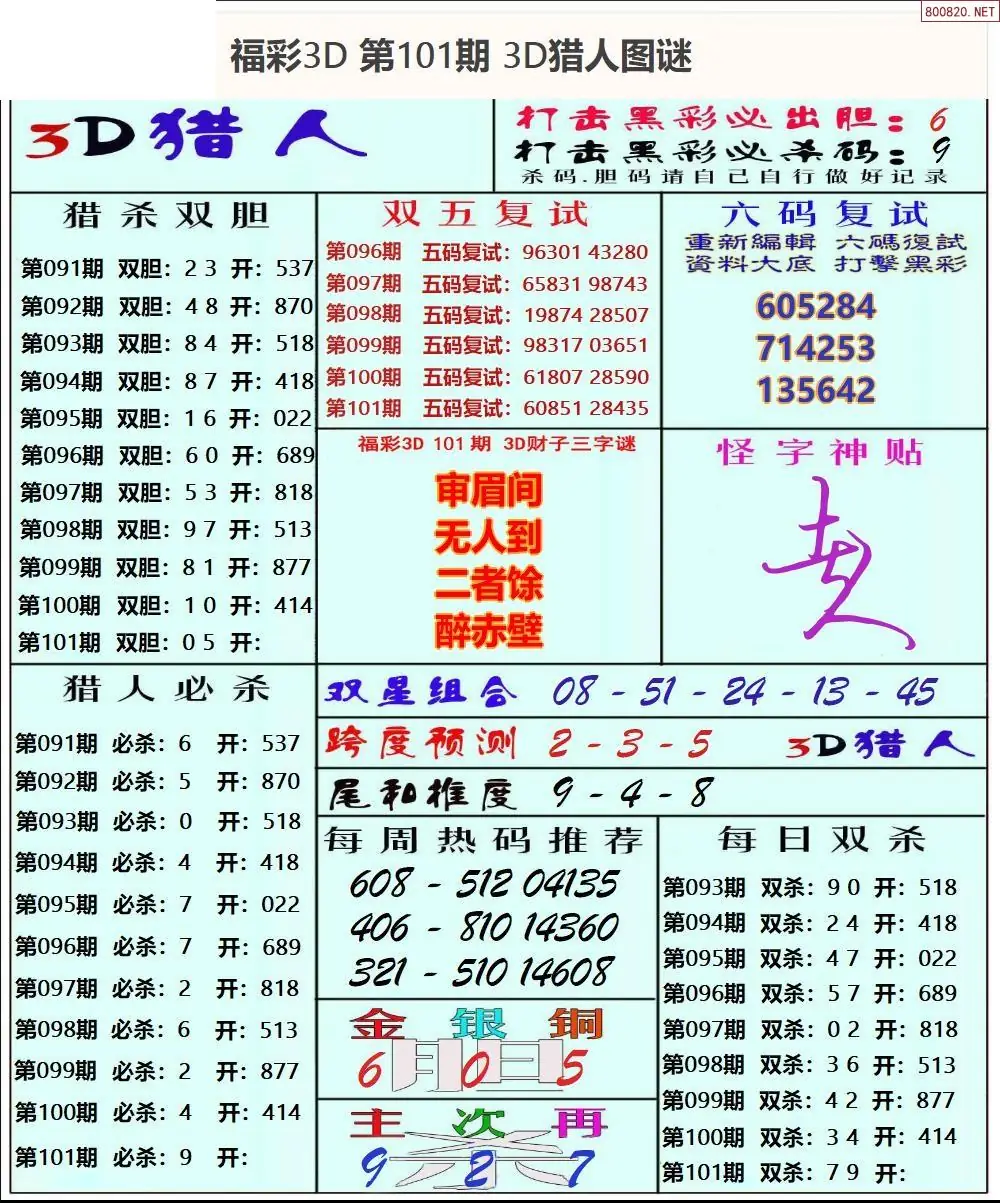 800820.NET
福彩3D 第101期 3D猎人图谜
3D猎人
打击黑彩必出胆：6
打击黑彩必杀码：9
杀码.胆码请自己自行做好记录
猎杀双胆
第091期 双胆：2 3 开：537
第092期 双胆：4 8 开：870
第093期 双胆：8 4 开：518
第094期 双胆：8 7 开：418
第095期 双胆：1 6 开：022
第096期 双胆：6 0 开：689
第097期 双胆：5 3 开：818
第098期 双胆：9 7 开：513
第099期 双胆：8 1 开：877
第100期 双胆：1 0 开：414
第101期 双胆：0 5 开：
双五复试
第096期 五码复试：96301 43280
第097期 五码复试：65831 98743
第098期 五码复试：19874 28507
第099期 五码复试：98317 03651
第100期 五码复试：61807 28590
第101期 五码复试：60851 28435
六码复试
重新編輯 六碼復試
資料大底 打擊黑彩
605284
714253
135642
福彩3D 101 期 3D财子三字谜
审眉间
无人到
二者馀
醉赤壁
怪字神贴
猎人必杀
第091期 必杀：6 开：537
第092期 必杀：5 开：870
第093期 必杀：0 开：518
第094期 必杀：4 开：418
第095期 必杀：7 开：022
第096期 必杀：7 开：689
第097期 必杀：2 开：818
第098期 必杀：6 开：513
第099期 必杀：2 开：877
第100期 必杀：4 开：414
第101期 必杀：9 开：
双星组合 08 - 51 - 24 - 13 - 45
跨度预测 2 - 3 - 5 3D猎人
尾和推度 9 - 4 - 8
每周热码推荐
608 - 512 04135
406 - 810 14360
321 - 510 14608
金 银 铜
胆码
6 0 5
主 次 再
杀
9 2 7
每日双杀
第093期 双杀：9 0 开：518
第094期 双杀：2 4 开：418
第095期 双杀：4 7 开：022
第096期 双杀：5 7 开：689
第097期 双杀：0 2 开：818
第098期 双杀：3 6 开：513
第099期 双杀：4 2 开：877
第100期 双杀：3 4 开：414
第101期 双杀：7 9 开：